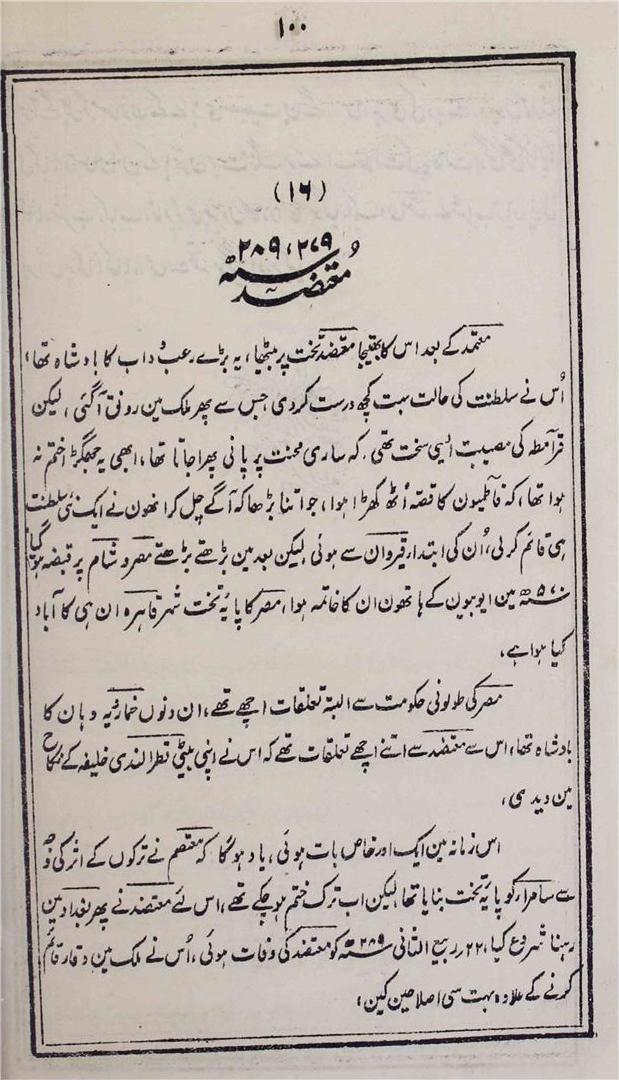 ۱۰۰
(۱۶)
۲۷۹، ۲۸۹
معُتضد سنہ
معتمد کے بعد اس کا بھتیجا معتضد تخت پر بیٹھا، یہ بڑے رعب و داب کا بادشاہ تھا،
اُس نے سلطنت کی حالت بہت کچھ درست کر دی جس سے پھر ملک مین رونق آ گئی، لیکن
قرامطہ کی مصیبت ایسی سخت تھی، کہ ساری محنت پر پانی پھرا جاتا تھا، ابھی یہ جھگڑا ختم نہ
ہوا تھا، کہ فاطمیون کا قصہ اُٹھ کھڑا ہوا، جو اتنا بڑھا کہ آگے چل کر انھون نے ایک نئی سلطنت
ہی قائم کر لی، اُن کی ابتدا، قیروان سے ہوئی لیکن بعد مین بڑھتے بڑھتے مصر و شام پر قبضہ ہو گیا
۵۷۰ھ مین ایوبیون کے ہاتھون ان کا خاتمہ ہوا، مصر کا پایۂ تخت شہر قاہرہ ان ہی کا آباد
کیا ہوا ہے،
مصر کی طولونی حکومت سے البتہ تعلقات اچھے تھے، ان دنوں خمارویہ وہان کا
بادشاہ تھا، اس سے معتضد سے اتنے اچھے تعلقات تھے کہ اس نے اپنی بیٹی قطر الندی خلیفہ کے نکاح
مین دیدی،
اس زمانہ مین ایک اور خاص بات ہوئی، یاد ہو گا کہ معتصم نے ترکوں کے اثر کی وجہ
سے سامرار کو پایۂ تخت بنایا تھا لیکن اب ترک ختم ہو چکے تھے، اس لئے معتضد نے پھر بغداد مین
رہنا شروع کیا، ۲۲ ربیع الثانی ۲۸۹ھ کو معتضد کی وفات ہوئی، اُس نے ملک مین وقار قائم
کرنے کے علاوہ بہت سی اصلاحین کین،